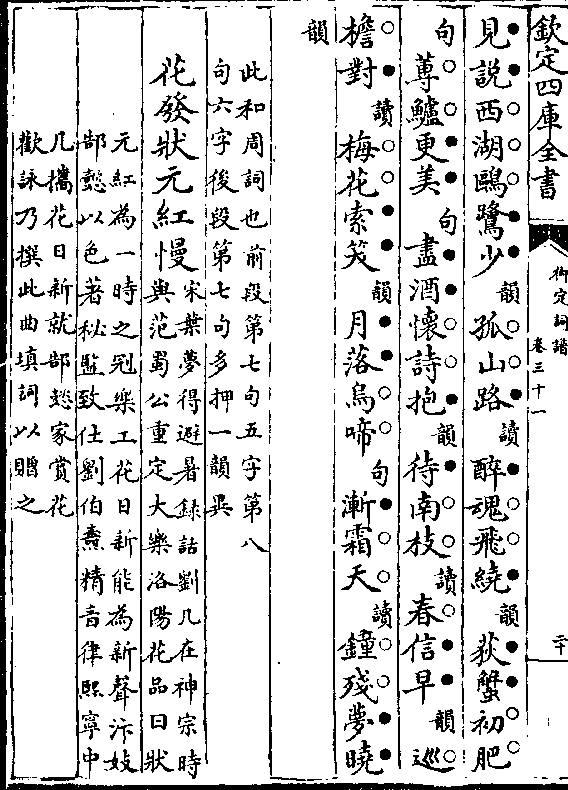 欽定四庫全書
御定詞譜
卷三十一
二十
見説西湖鷗鷺少韻孤山路讀醉魂飛繞韻荻蟹初肥
句蓴鱸更美句盡酒懷詩抱韻待南枝讀春信早韻巡
檐對讀梅花索笑韻月落烏啼句漸霜天讀鐘殘夢曉
韻
此和周詞也前段第七句五字第八
句六字後段第七句多押一韻異
花發狀元紅慢
宋葉夢得避暑録話劉几在神宗時
與范蜀公重定大樂洛陽花品曰狀
元紅為一時之冠樂工花日新能為新聲汴妓
郜懿以色著秘監致仕劉伯燾精音律熙寧中
几攜花日新就郜懿家賞花
歡詠乃撰此曲填詞以贈之